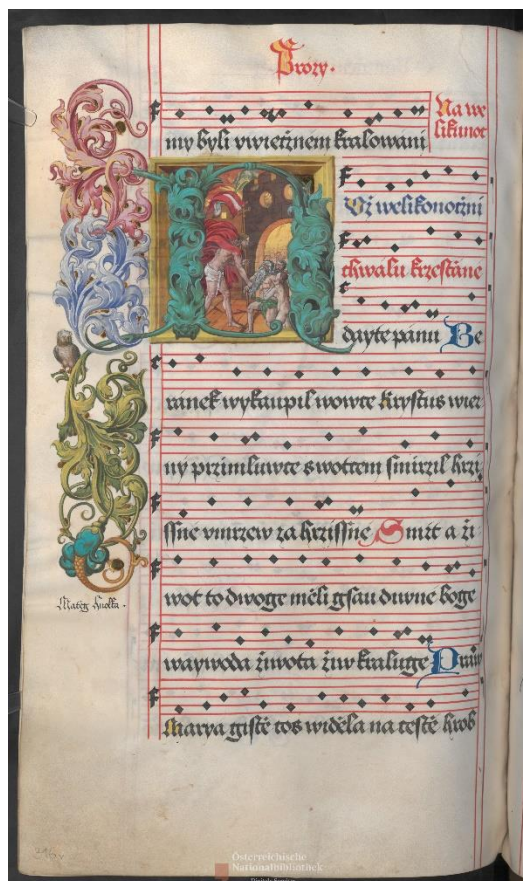 Prozy.
my byli wwieczném kralowani
Na we
likunot
Uż welikonoczni
chwalu krzestiane
dayte panu Be
ranek wykaupil wowce krystus wier
ny przimluwce s wottem smirzil hrzi
ssne vmrzew za hrzissne Smrt a ži
wot to dwoge měli gsau diwne boge
waywoda žiwota žiw kraluge Praw
Marya gistě cos widěla na cestě hrob
Österreichische
Nationalbibliothek